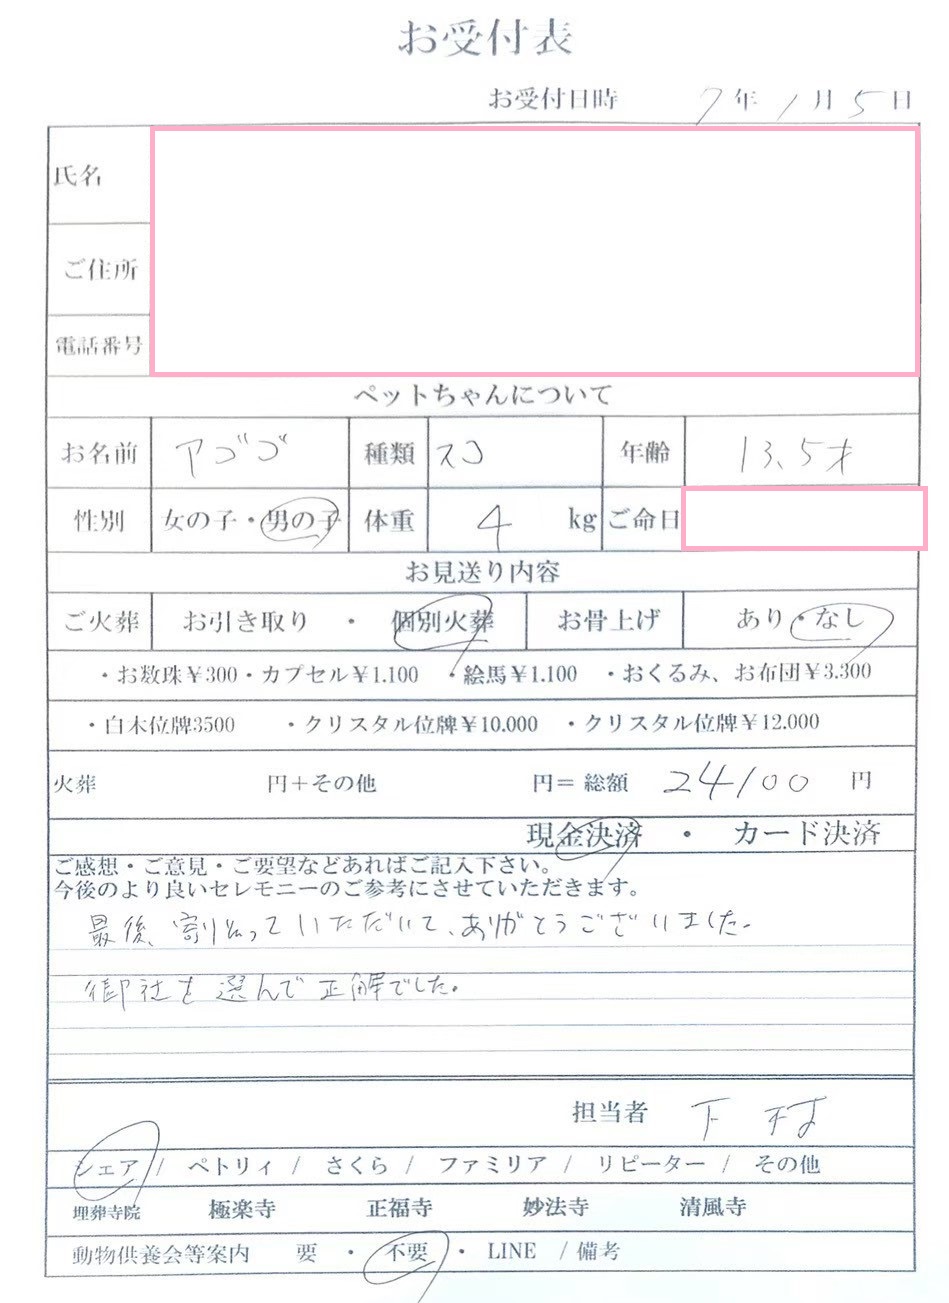 お受付表
お受付日時 7年1月5日
氏名
ご住所
電話番号
ペットちゃんについて
お名前 アゴゴ 種類 スコ 年齢 13.5才
性別 女の子・男の子 体重 4 kg ご命日
お見送り内容
ご火葬 お引き取り ・ 個別火葬 お骨上げ あり・なし
・お数珠￥300・カプセル￥1.100 ・絵馬￥1.100 ・おくるみ、お布団￥3.300
・白木位牌3500 ・クリスタル位牌￥10.000 ・クリスタル位牌￥12.000
火葬 円＋その他 円＝ 総額 24100 円
現金決済 ・ カード決済
ご感想・ご意見・ご要望などあればご記入下さい。
今後のより良いセレモニーのご参考にさせていただきます。
最後、寄り添っていただいて、ありがとうございました。
御社を選んで正解でした。
担当者 下村
シェア / ペトリィ / さくら / ファミリア / リピーター / その他
埋葬寺院 極楽寺 正福寺 妙法寺 清風寺
動物供養会等案内 要 ・ 不要 ・ LINE / 備考